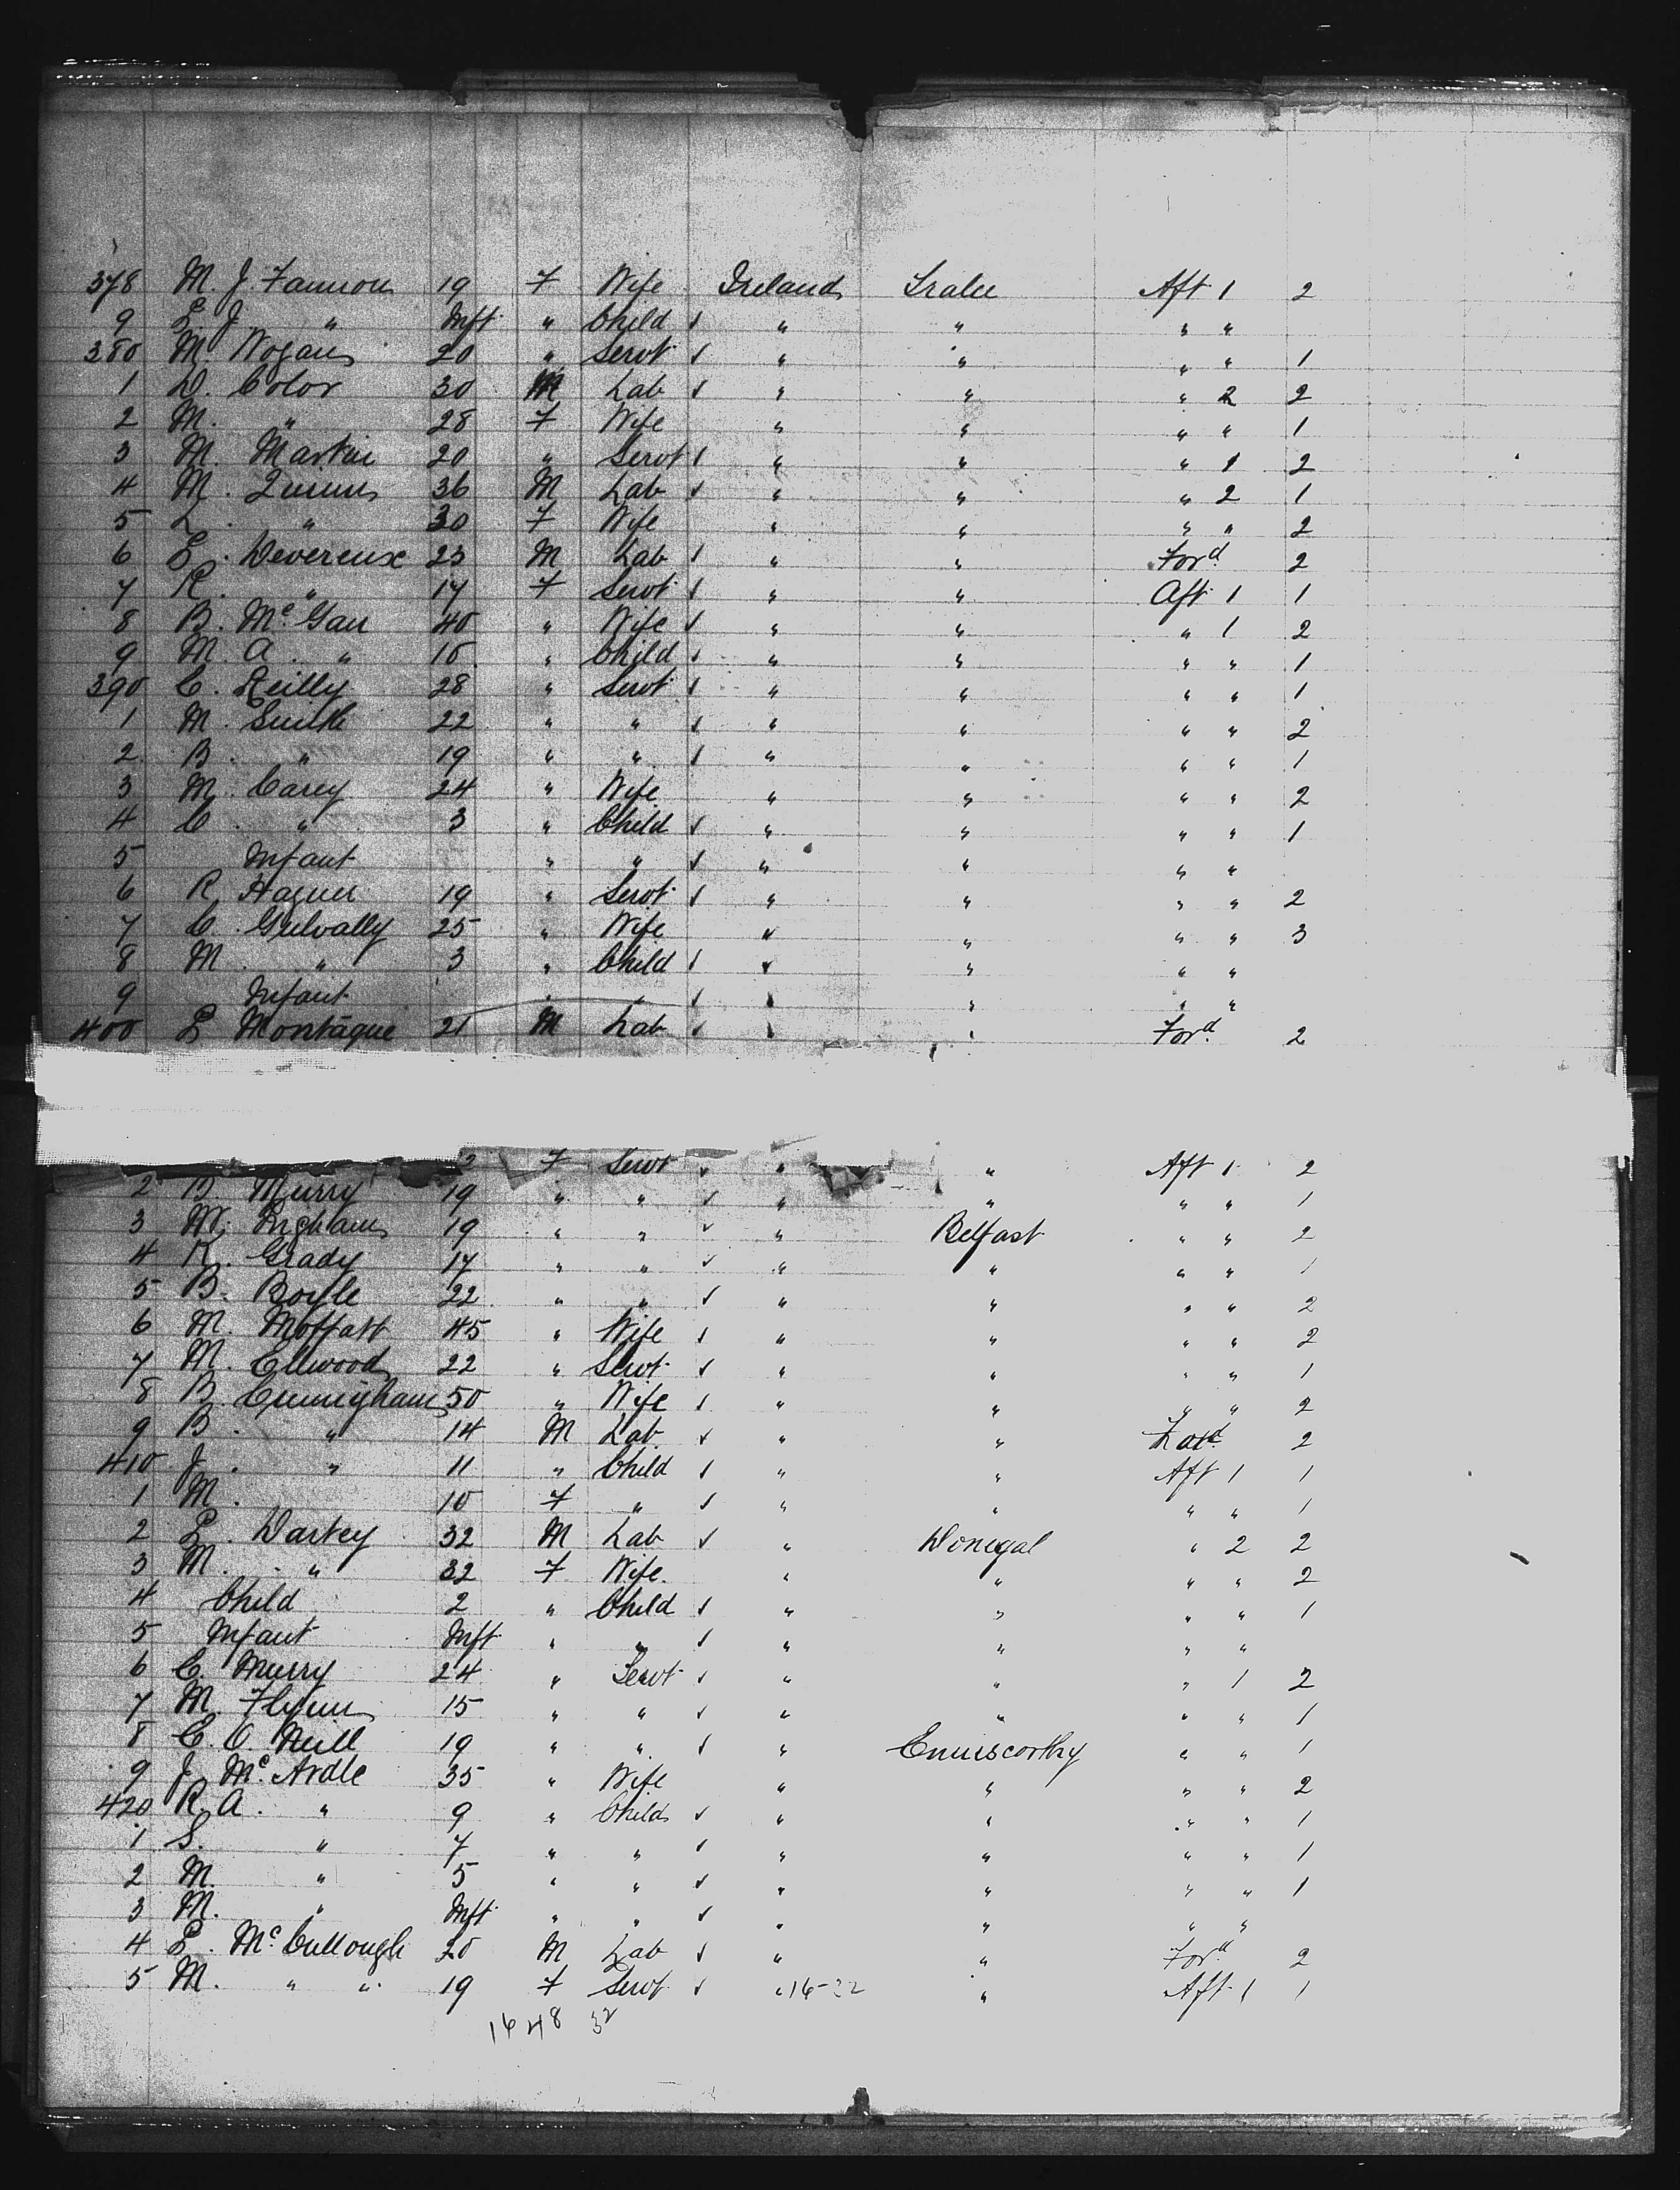 378 M. J. Fannon 19 F Wife Ireland Tralee Aft 1 2
9 E. J. " Inft " Child ✓ " " " "
380 M. Nogan 20 " Servt ✓ " " " " 1
1 D. Color 30 M Lab ✓ " " " 2 2
2 M. " 28 F Wife " " " " 1
3 M. Martin 20 " Servt ✓ " " " 1 2
4 M. Quinn 36 M Lab ✓ " " " 2 1
5 L. " 30 F Wife " " " " 2
6 E. Devereux 23 M Lab ✓ " " Ford 2
7 R. " 17 F Servt ✓ " " Aft 1 1
8 B. McGan 40 " Wife ✓ " " " 1 2
9 M. A. " 10 " Child ✓ " " " " 1
390 C. Reilly 28 " Servt ✓ " " " " 1
1 M. Smith 22 " " ✓ " " " " 2
2 B. " 19 " " ✓ " " " " 1
3 M. Carey 24 " Wife " " " " 2
4 C. " 3 " Child ✓ " " " " 1
5 Infant " " ✓ " " " "
6 R. Hagner 19 " Servt ✓ " " " " 2
7 C. Gulvally 25 " Wife " " " " 3
8 M. " 3 " Child ✓ " " " "
9 Infant " " ✓ " " " "
400 Montague M Lab ✓ " " Ford 2
2 F Servt ✓ " " Aft 1 2
2 B. Murry 19 " " ✓ " " " " 1
3 M. Ingham 19 " " ✓ " Belfast " " 2
4 R. Grady 17 " " ✓ " " " " 1
5 B. Boyle 22 " " ✓ " " " " 2
6 M. Moffatt 45 " Wife ✓ " " " " 2
7 M. Ellwood 22 " Servt ✓ " " " " 1
8 B. Cunnigham 50 " Wife ✓ " " " " 2
9 B. " 14 M Lab ✓ " " 2
410 J. " 11 " Child ✓ " " Aft 1 1
1 M. 10 F " ✓ " " " " 1
2 P. Dartey 32 M Lab ✓ " Donegal " 2 2
3 M. " 32 F Wife " " " " 2
4 Child 2 " Child ✓ " " " " 1
5 Infant Inft " " ✓ " " " "
6 C. Murry 24 " Servt ✓ " " " 1 2
7 M. Flynn 15 " " ✓ " " " " 1
8 C. O. Neill 19 " " ✓ " Enniscorthy " " 1
9 J. McArdle 35 " Wife " " " " 2
420 R. A. " 9 " Child ✓ " " " " 1
1 S. " 7 " " ✓ " " " " 1
2 M. " 5 " " ✓ " " " " 1
3 M. " Inft " " ✓ " " " "
4 P. McCullough 20 M Lab ✓ " " Ford 2
5 M. " " 19 F Servt ✓ " 16-32 " Aft 1 1
16 48 32